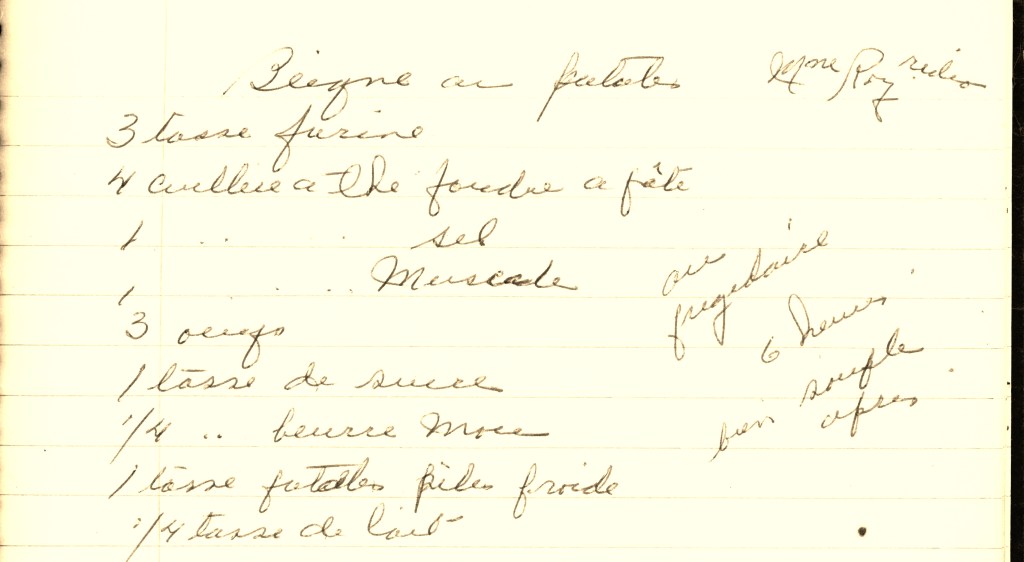 Beigne au patates Mme Roy
3 tasse farine
4 cuillere a the poudre a pâte
1 .. .. sel
1 .. .. Muscade
3 oeufs
1 tasse de sucre
1/4 .. beurre Mou
1 tasse patates pilés froide
1/4 tasse de lait
au
frigidaire
6 heures
bien souple
apres